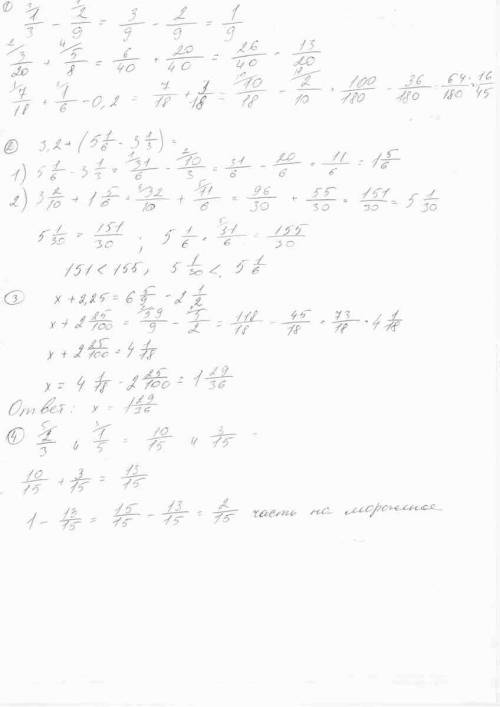 ① 1/3 - 2/9 = 3/9 - 2/9 = 1/9
3/20 + 5/8 = 6/40 + 20/40 = 26/40 = 13/20
7/18 + 1/6 - 0,2 = 7/18 + 3/18 = 10/18 - 2/10 = 100/180 - 36/180 = 64/180 = 16/45
② 3,2 + (5 1/6 - 3 1/3) =
1) 5 1/6 - 3 1/3 = 31/6 - 10/3 = 31/6 - 20/6 = 11/6 = 1 5/6
2) 3 2/10 + 1 5/6 = 32/10 + 11/6 = 96/30 + 55/30 = 151/30 = 5 1/30
5 1/30 = 151/30 ; 5 1/6 = 31/6 = 155/30
151 < 155, 5 1/30 < 5 1/6
③ x + 2,25 = 6 5/9 - 2 1/2
x + 2 25/100 = 59/9 - 5/2 = 118/18 - 45/18 = 73/18 = 4 1/18
x + 2 25/100 = 4 1/18
x = 4 1/18 - 2 25/100 = 1 29/36
Ответ: x = 1 29/36
④ 2/3 и 1/5 = 10/15 и 3/15
10/15 + 3/15 = 13/15
1 - 13/15 = 15/15 - 13/15 = 2/15 часть на мороженое